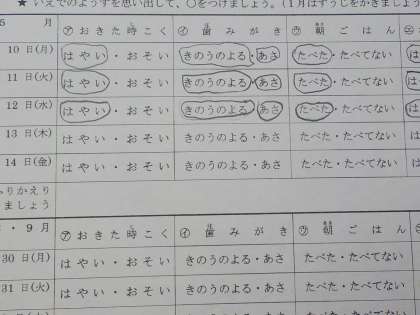 ★ いえでのようすを思い出して、〇をつけましょう。(1月はすうじをかきましょう
月 ㋐ おきた時こく ㋑ 歯みがき ㋒ 朝ごはん
10 日(月) はやい・おそい きのうのよる・あさ たべた・たべてない
11 日(火) はやい・おそい きのうのよる・あさ たべた・たべてない
12 日(水) はやい・おそい きのうのよる・あさ たべた・たべてない
13 日(木) はやい・おそい きのうのよる・あさ たべた・たべてない
14 日(金) はやい・おそい きのうのよる・あさ たべた・たべてない
ふりかえり
ましょう
・9月 ㋐ おきた時こく ㋑ 歯みがき ㋒ 朝ごはん
30 日(月) はやい・おそい きのうのよる・あさ たべた・たべてない
31 日(火) はやい・おそい きのうのよる・あさ たべた・たべてない